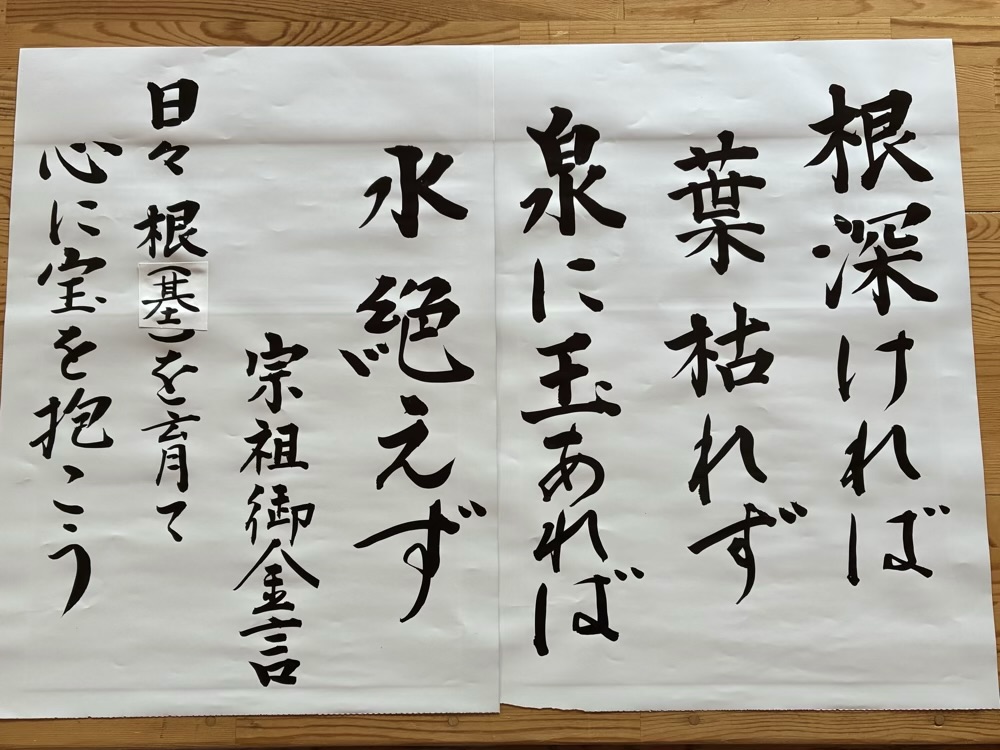 根深ければ
葉枯れず
泉に玉あれば
水絶えず
宗祖御金言
日々根(基)を育て
心に宝を抱こう